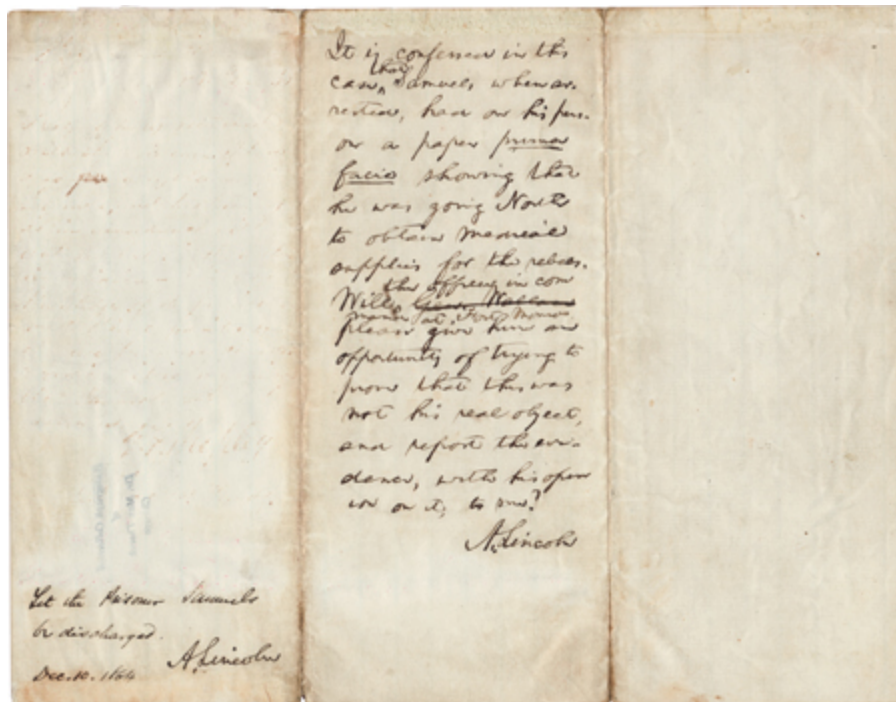 It is confessed in this
case, that Samuels, when ar-
rested, had on his pers-
on a paper prima
facie showing that
he was going North
to obtain medical
supplies for the rebels.
Will the officer in com
mand at Fort Monroe
Gen. Wallace
please give him an
opportunity of trying to
prove that this was
not his real object,
and report the evi-
dence, with his opin
ion on it, to me?
A. Lincoln
Let the Prisoner Samuels
be discharged.
A. Lincoln
Dec. 10. 1864